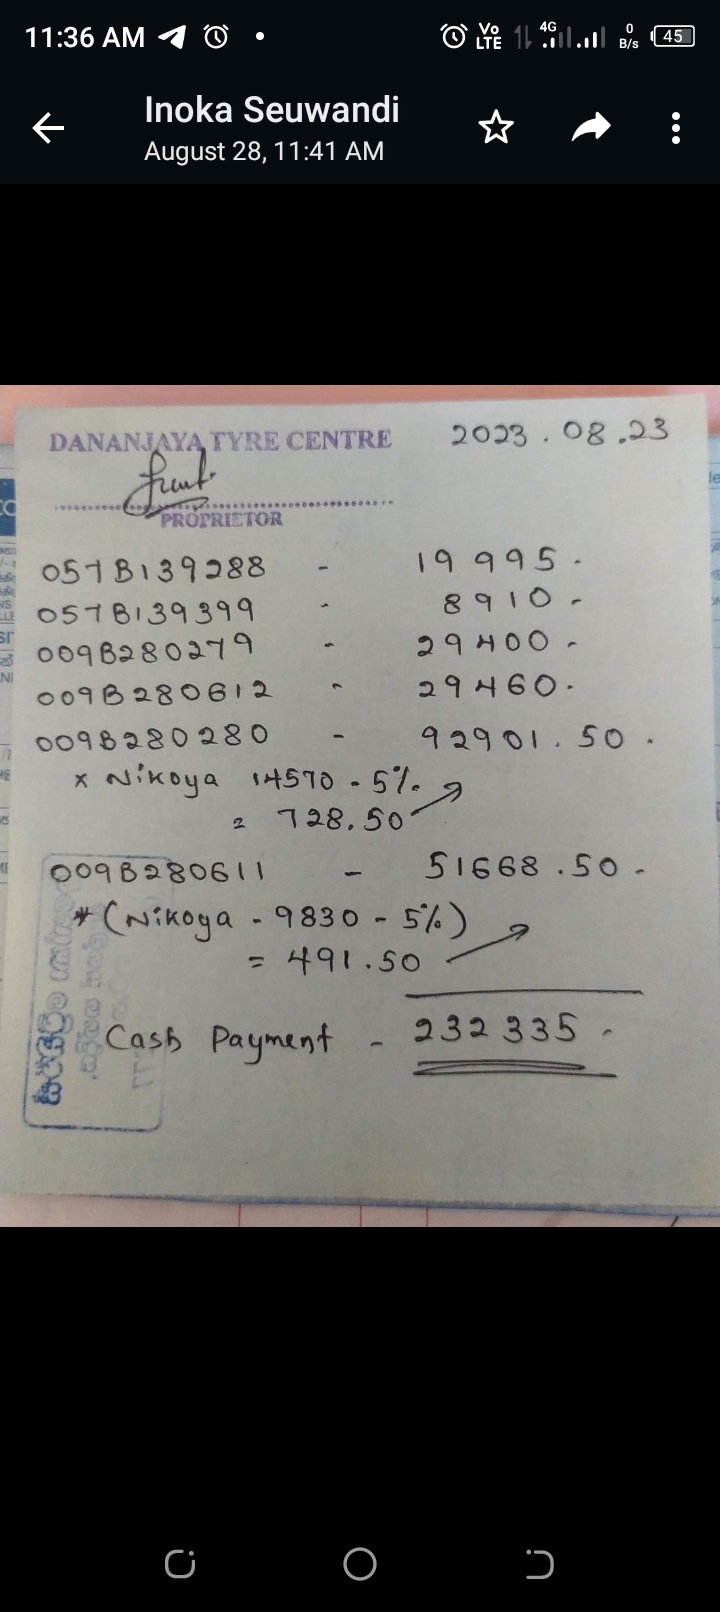 11:36 AM
Vo LTE 4G 0 B/s 45
Inoka Seuwandi
August 28, 11:41 AM
DANANJAYA TYRE CENTRE 2023.08.23
PROPRIETOR
057B139288 - 19 995.
057B139399 - 8910 -
009B280279 - 29400 -
009B280612 - 29460.
009B280280 - 92901.50.
x Nikoya 14570 - 5%
= 728.50
009B280611 - 51668.50 -
*(Nikoya - 9830 - 5%)
= 491.50
Cash Payment - 232 335 -